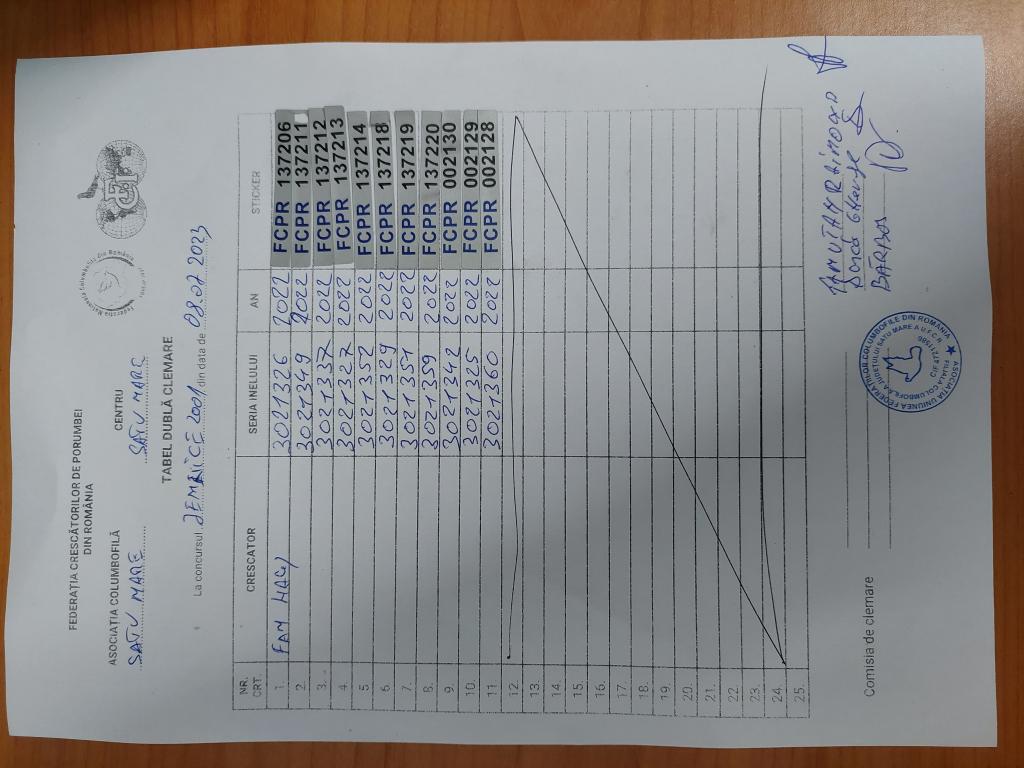 FEDERAȚIA CRESCĂTORILOR DE PORUMBEI
DIN ROMÂNIA
ASOCIAȚIA COLUMBOFILĂ CENTRU
SATU MARE SATU MARE
TABEL DUBLĂ CLEMARE
La concursul JEMNICE 2001 din data de 08.07 2023
NR. CRT. CRESCATOR SERIA INELULUI AN STICKER
1. FAM HAGY 3021326 2022 FCPR 137206
2. 3021349 2022 FCPR 137211
3. 3021337 2022 FCPR 137212
4. 3021327 2022 FCPR 137213
5 3021352 2022 FCPR 137214
6. 3021329 2022 FCPR 137218
7. 3021351 2022 FCPR 137219
8. 3021359 2022 FCPR 137220
9. 3021342 2022 FCPR 002130
10. 3021325 2022 FCPR 002129
11 3021360 2022 FCPR 002128
12.
13.
14.
15.
16.
17.
18.
19.
20.
21.
22.
23.
24.
25.
Comisia de clemare
BARBOS
ASOCIAȚIA UNIUNEA FEDERAȚIILOR COLUMBOFILE DIN ROMÂNIA
FILIALA COLUMBOFILĂ A JUDEȚULUI SATU MARE A U.F.C.R.